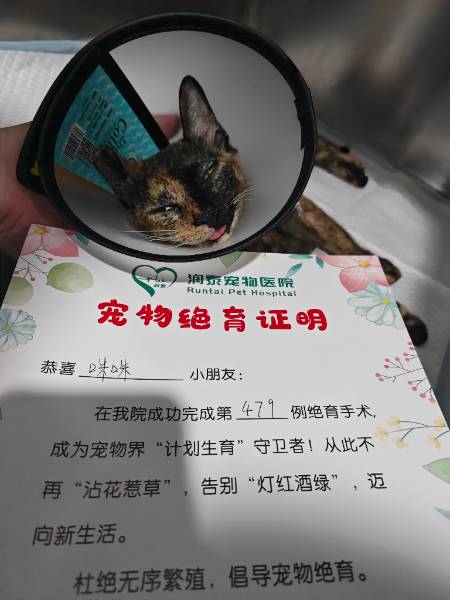 润泰宠物医院
Runtai Pet Hospital
宠物绝育证明
恭喜 咪咪 小朋友：
在我院成功完成第 479 例绝育手术，
成为宠物界“计划生育”守卫者！从此不
再“沾花惹草”，告别“灯红酒绿”，迈
向新生活。
杜绝无序繁殖，倡导宠物绝育。